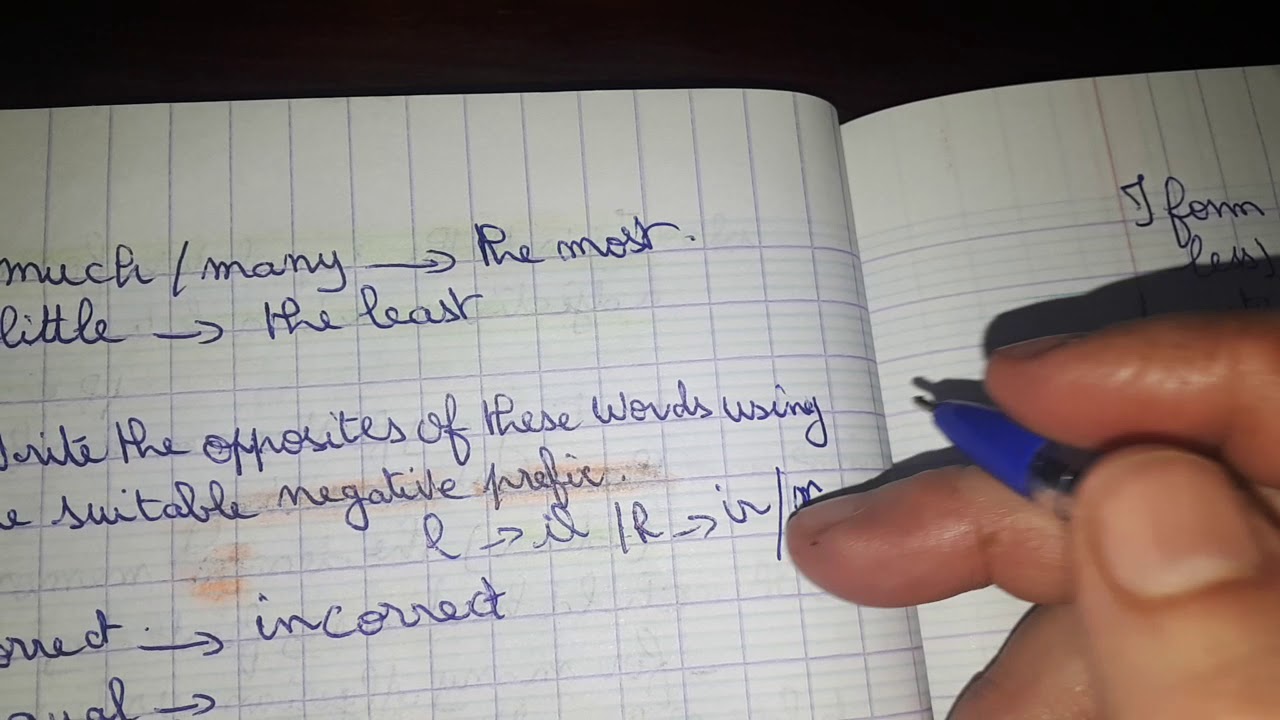 much / many → the most.
little → the least
write the opposites of these words using
e suitable negative prefix.
l → il / R → ir / m
orrect → incorrect
qual →
I form
less